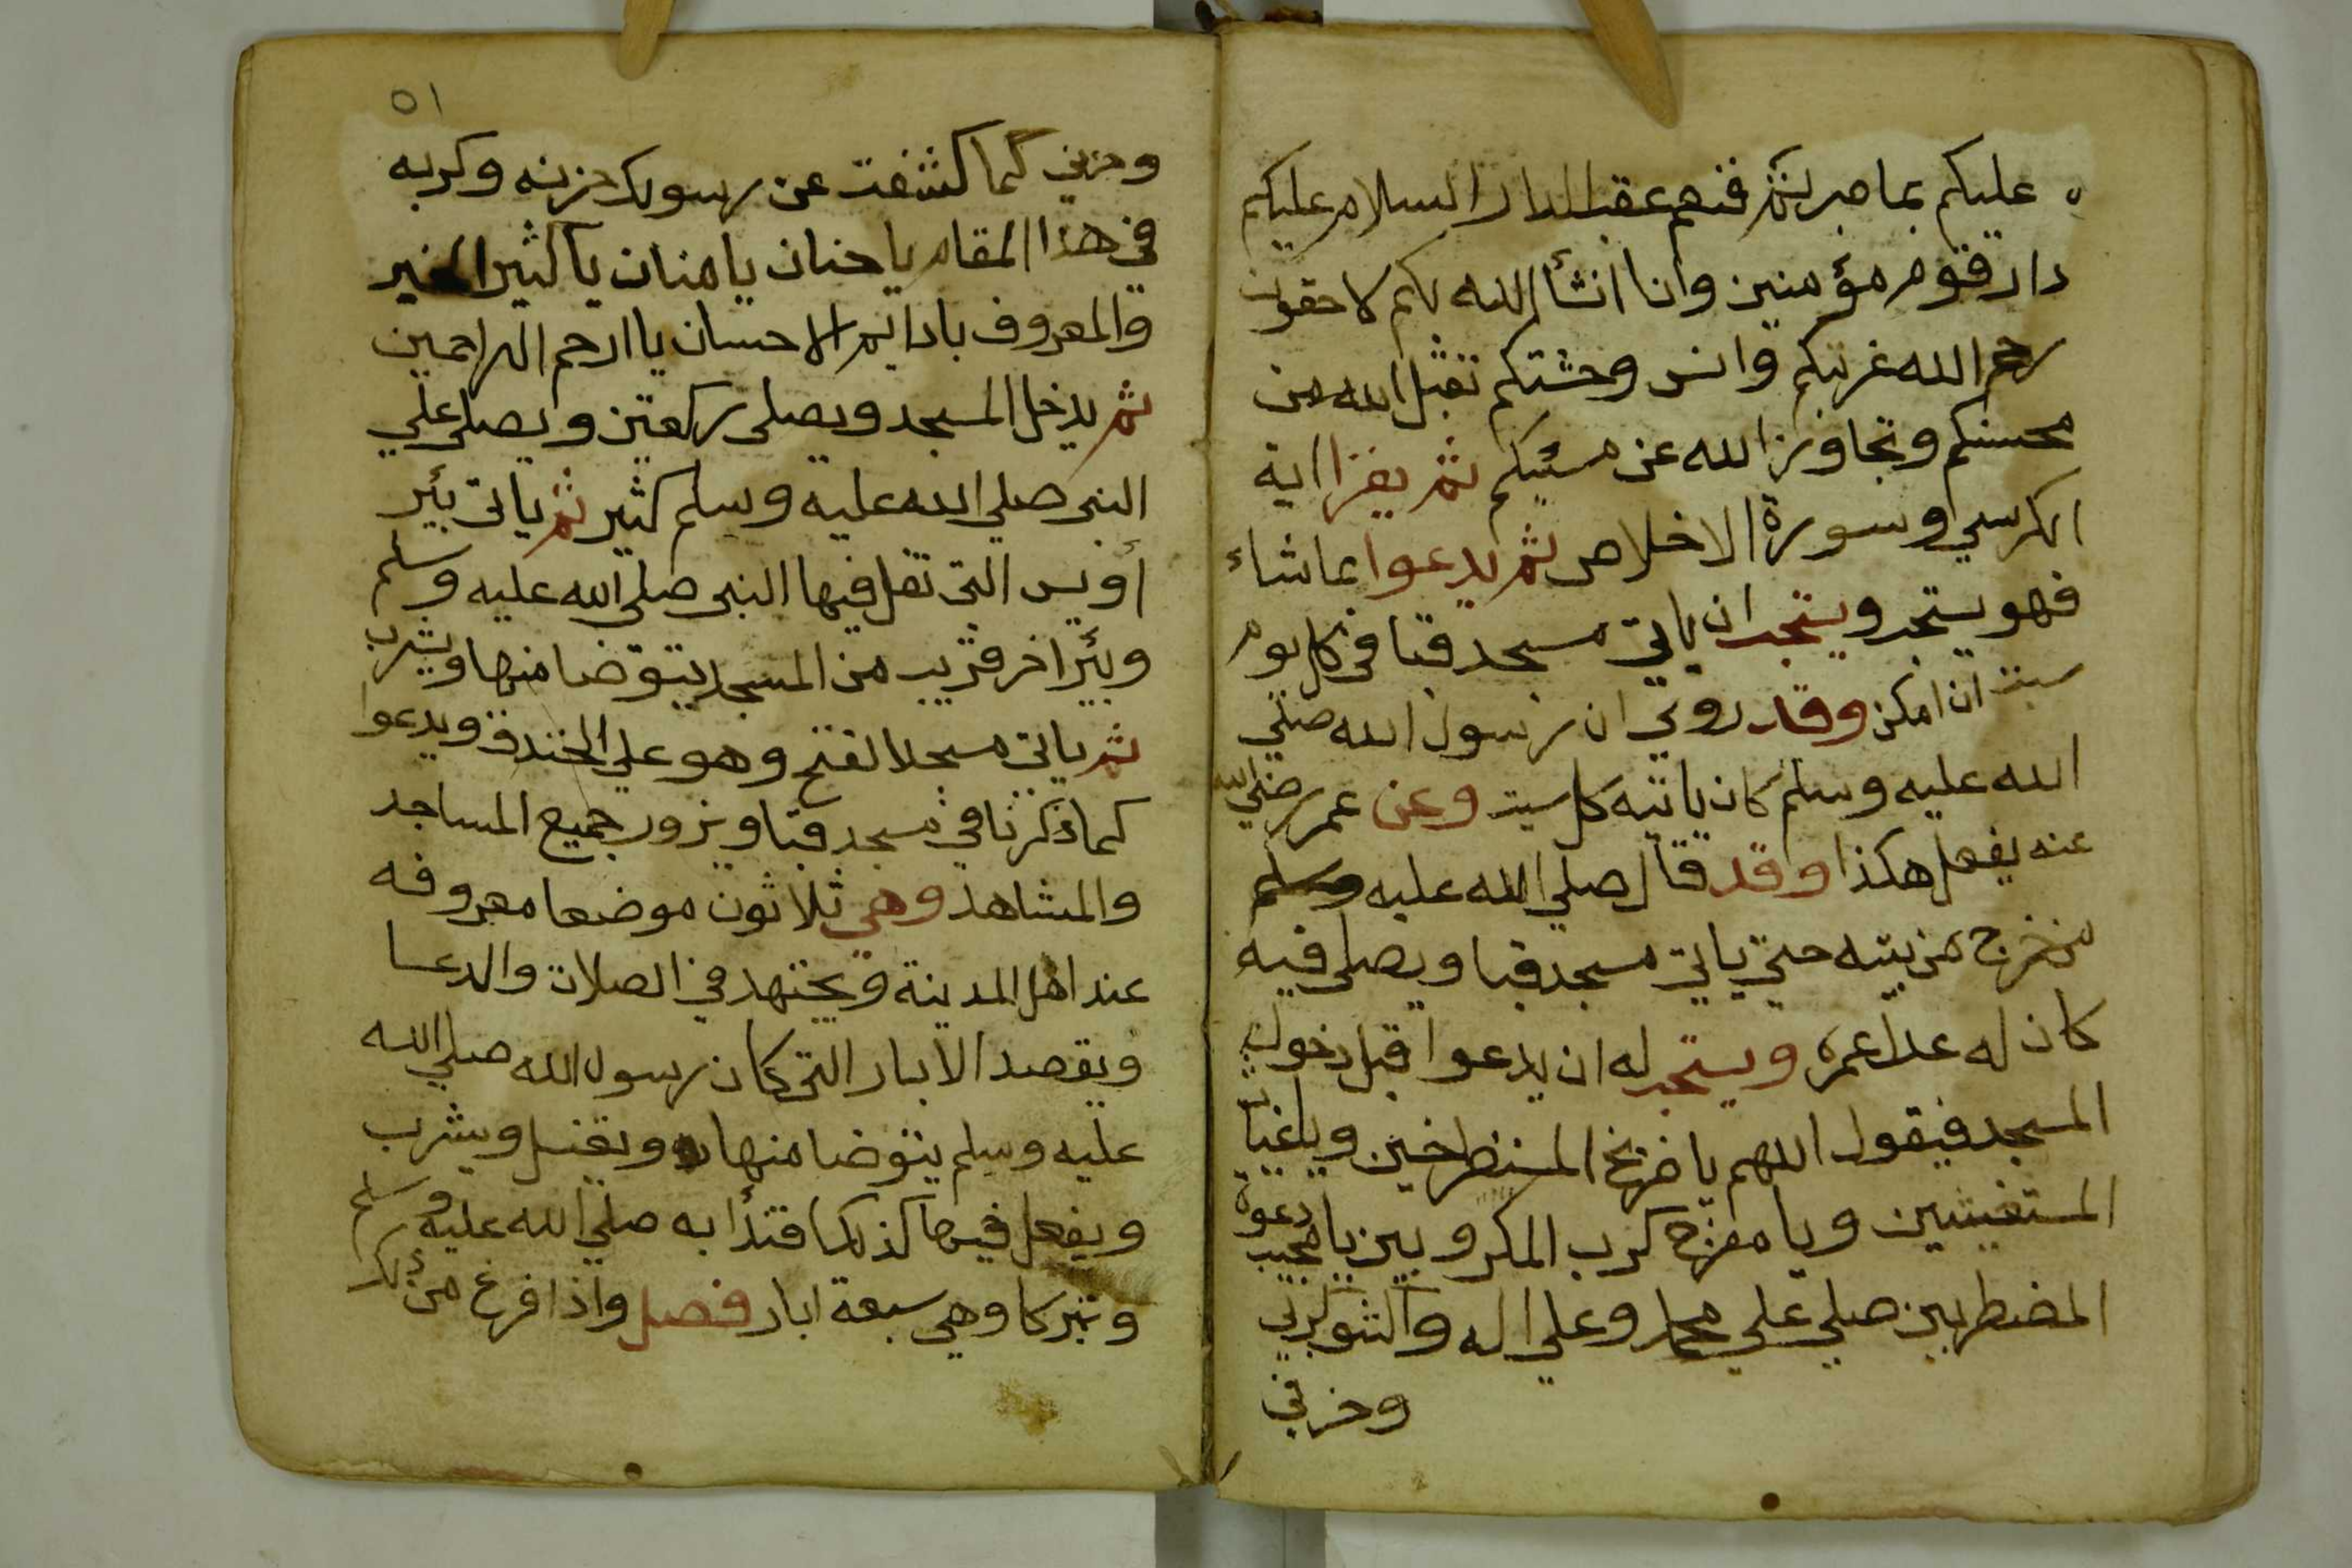 عليكم بما صبرتم فنعم عقبا الدار السلام عليكم
دار قوم مؤمنين وانا انشأ الله بكم لاحقون
رحم الله غربتكم وانس وحشتكم تقبل الله من
محسنكم وتجاوز الله عن مسيئكم ثم يقرا اية
الكرسي وسورة الاخلاص ثم يدعوا بما شاء
فهو يستجب ويستجب ان ياتي مسجد قبا في كل يوم
سبت ان امكن وقد روي ان رسول الله صلي
الله عليه وسلم كان ياتيه كل سبت وعن عمر رضي الله
عنه يفعل هكذا وقد قال صلي الله عليه وسلم
من خرج من بيته حتي ياتي مسجد قبا ويصلي فيه
كان له عدل عمرة ويستحب له ان يدعوا قبل دخول
المسجد فيقول اللهم يا صريخ المستصرخين ويا غياث
المستغيثين ويا مفرج كرب المكروبين يا مجيب دعوة
المضطرين صلي علي محمد وعلي اله واكشف كربي
وحزني
٥١
وحزني كما كشفت عن رسولك حزنه وكربه
في هذا المقام يا حنان يا منان يا كثير الخير
والمعروف يا دايم الاحسان يا ارحم الراحمين
ثم يدخل المسجد ويصلي ركعتين ويصلي علي
النبي صلي الله عليه وسلم كثير ثم ياتي بئير
أويس التي تفل فيها النبي صلي الله عليه وسلم
وبئير اخر قريب من المسجد يتوضا منها ويشرب
ثم ياتي مسجد الفتح وهو علي الخندق ويدعوا
كما ذكرنا في مسجد قبا ويزور جميع المساجد
والمشاهد وهي ثلاثون موضعا معروفه
عند اهل المدينة ويجتهد في الصلات والدعا
ويقصد الابار التي كان رسول الله صلي الله
عليه وسلم يتوضا منها ويغتسل ويشرب
ويفعل فيها كذلك اقتدأ به صلي الله عليه وسلم
وتبركا وهي سبعة ابار فصل واذا افرغ من ذلك